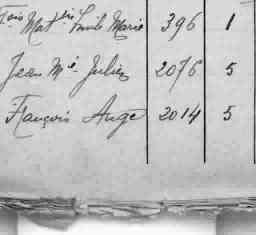 François Mat^his Emile Marie 396 1
Jean M^ie Julien 2076 5
François Ange 2014 5